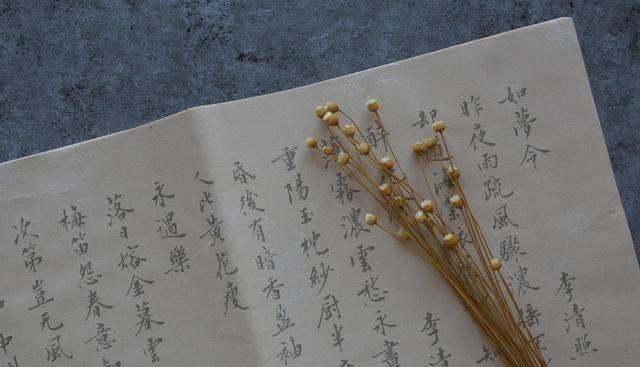 如夢令 李清照
昨夜雨疏風驟濃睡不
却道海棠 知
醉 李清
薄霧濃雲愁永晝
重陽玉枕紗厨半
昏後有暗香盈袖
人比黃花瘦
永遇樂
落日熔金暮雲
梅笛怨春意
次第豈无風
中